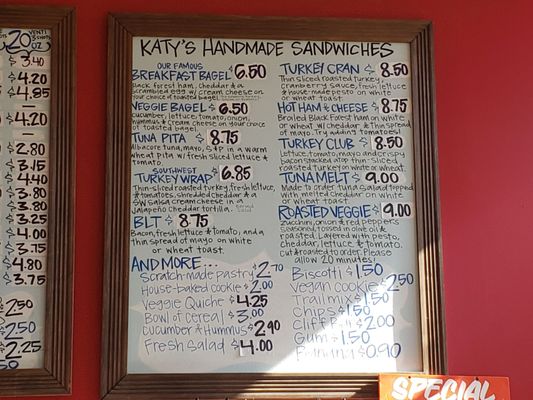 VENTI
20 OZ
3.40
4.20
4.85
4.20
2.80
3.15
4.40
3.80
3.80
3.25
4.00
3.75
4.80
3.75
2.50
2.50
2.25
KATY'S HANDMADE SANDWICHES
OUR FAMOUS
BREAKFAST BAGEL $6.50
Black forest ham, cheddar & a
scrambled egg w/ cream cheese on
your choice of toasted bagel.
VEGGIE BAGEL $6.50
cucumber, lettuce, tomato, onion,
hummus & cream cheese on your choice
of toasted bagel.
TUNA PITA $8.75
Albacore tuna, mayo, S&P in a warm
wheat pita w/ fresh sliced lettuce &
tomato.
SOUTHWEST
TURKEY WRAP $6.85
Thin-sliced roasted turkey, fresh lettuce,
& tomatoes, shredded cheddar & a
SW salsa cream cheese in a
Jalapeño Cheddar tortilla.
BLT $8.75
Bacon, fresh lettuce & tomato, and a
thin spread of mayo on white
or wheat toast.
AND MORE...
Scratch-made pastry $2.70
House-baked cookie $2.00
Veggie Quiche $4.25
Bowl of Cereal $3.00
Cucumber & Hummus $2.90
Fresh Salad $4.00
TURKEY CRAN $8.50
Thin sliced roasted turkey,
cranberry sauce, fresh lettuce
& house-made pesto on white
or wheat toast.
HOT HAM & CHEESE $8.75
Broiled Black Forest ham on white
or wheat w/ cheddar & thin spread
of mayo. Try adding tomatoes!
TURKEY CLUB $8.50
Lettuce, tomato, mayo and crispy
bacon stacked atop thin-sliced
roasted turkey on white or wheat.
TUNA MELT $9.00
Made to order tuna salad topped
with melted cheddar on white
or wheat toast.
ROASTED VEGGIE $9.00
Zucchini, onion & red peppers
seasoned, tossed in olive oil &
roasted. Layered with pesto,
cheddar, lettuce & tomato.
Cut & roasted to order. Please
allow 20 minutes!
Biscotti $1.50
Vegan cookie $2.50
Trail mix $1.50
Chips $1.50
Cliff Bar $2.00
Gum $1.50
Banana $0.90
SPECIAL